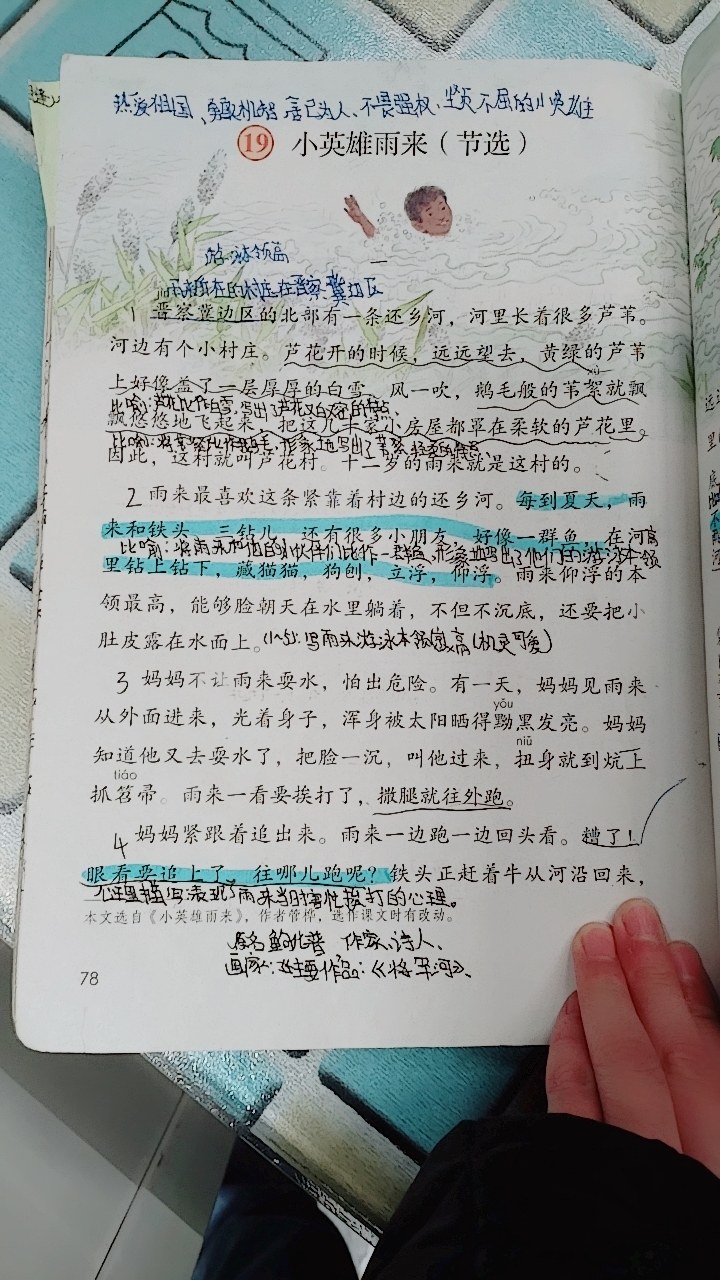 热爱祖国、勇敢机智、舍己为人、不畏强权、坚贞不屈的小英雄
19 小英雄雨来（节选）
游泳本领高
一
雨来所在的村庄在晋察冀边区
1 晋察冀边区的北部有一条还乡河，河里长着很多芦苇。
河边有个小村庄。芦花开的时候，远远望去，黄绿的芦苇
xù
上好像盖了一层厚厚的白雪。风一吹，鹅毛般的苇絮就飘
比喻：芦花比作白雪，写出了芦花又白又多的特点、
飘悠悠地飞起来，把这几十家小房屋都罩在柔软的芦花里。
因此，这村就叫芦花村。十二岁的雨来就是这村的。
2 雨来最喜欢这条紧靠着村边的还乡河。每到夏天，雨
来和铁头、三钻儿，还有很多小朋友，好像一群鱼，在河
比喻：将雨来和他的小伙伴们比作一群鱼，形象地写出了他们的游泳本领高
里钻上钻下，藏猫猫，狗刨，立浮，仰浮。雨来仰浮的本
领最高，能够脸朝天在水里躺着，不但不沉底，还要把小
肚皮露在水面上。(1~2):写雨来游泳本领最高(机灵可爱)
3 妈妈不让雨来耍水，怕出危险。有一天，妈妈见雨来
yǒu
从外面进来，光着身子，浑身被太阳晒得黝黑发亮。妈妈
niǔ
知道他又去耍水了，把脸一沉，叫他过来，扭身就到炕上
tiáo
抓笤帚。雨来一看要挨打了，撒腿就往外跑。
4 妈妈紧跟着追出来。雨来一边跑一边回头看。糟了！
眼看要追上了，往哪儿跑呢？铁头正赶着牛从河沿回来，
心理描写：表现了雨来当时害怕挨打的心理。
本文选自《小英雄雨来》，作者管桦，选作课文时有改动。
原名鲍化普 作家、诗人、
画家：主要作品：《将军河》、
78